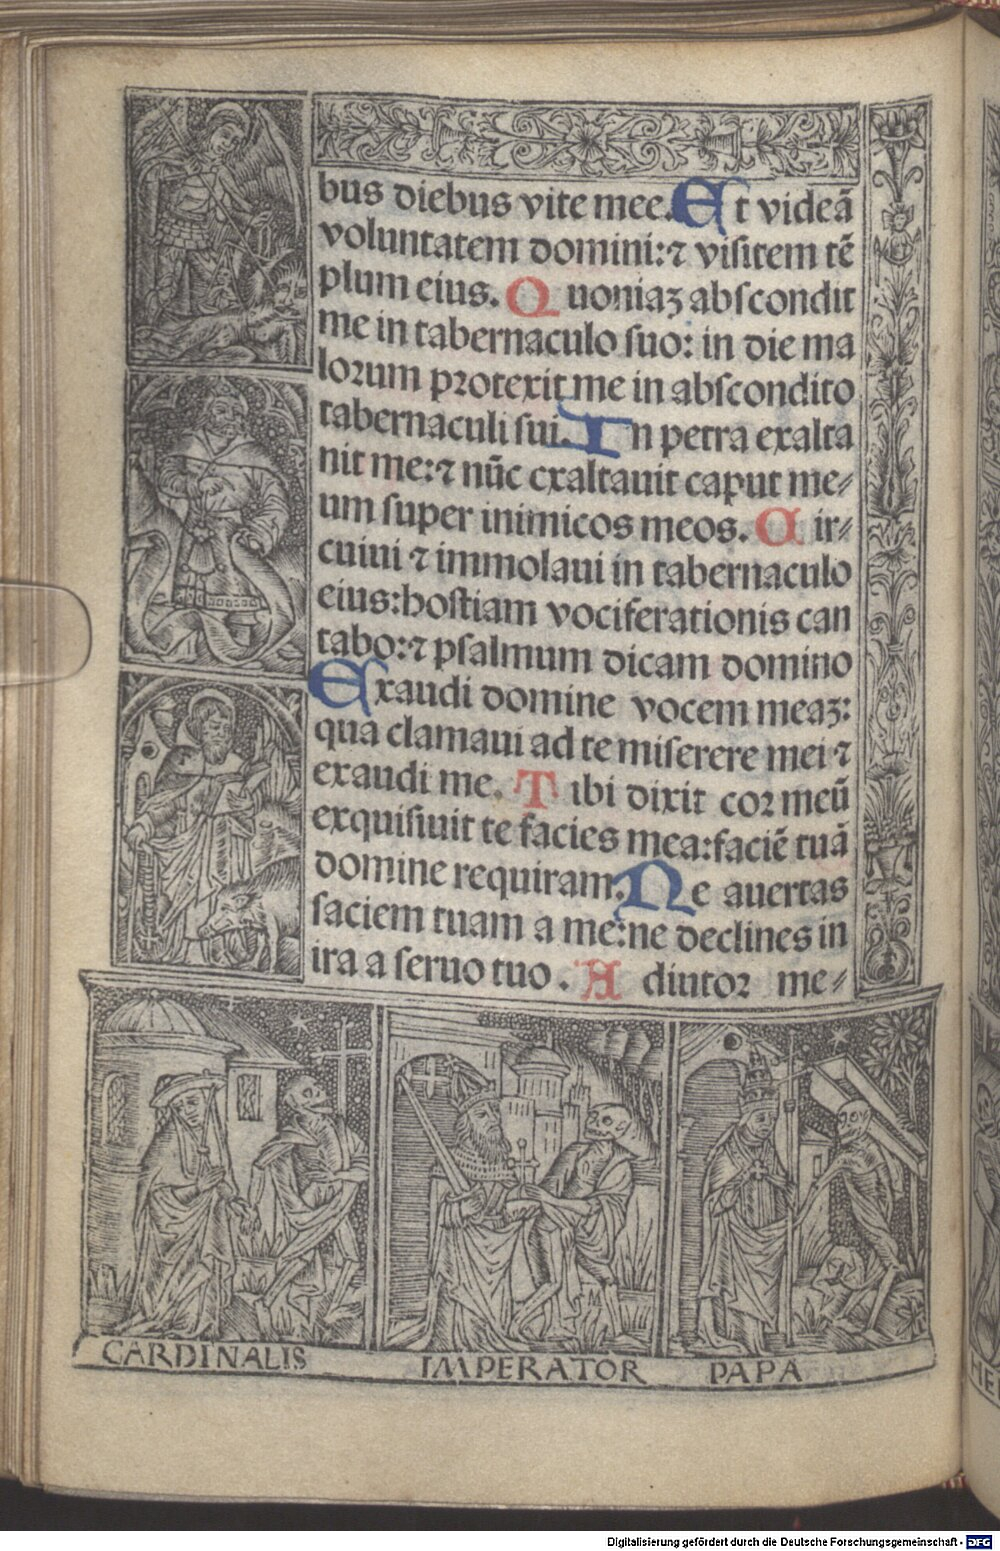 bus diebus vite mee. Et videã
voluntatem domini:⁊ visitem tẽ
plum eius. Quoniaꝫ abscondit
me in tabernaculo suo: in die ma
loꝛum pꝛotexit me in abscondito
tabernaculi sui. In petra exalta
nit me:⁊ nũc exaltauit caput me⸗
um super inimicos meos. Cir⸗
cuiui ⁊ immolaui in tabernaculo
eius:hostiam vociferationis can
tabo:⁊ psalmum dicam domino
Exaudi domine vocem meaꝫ:
qua clamaui ad te miserere mei ⁊
exaudi me. Tibi dixit coꝛ meũ
exquisiuit te facies mea:faciẽ tuã
domine requiram. Ne auertas
faciem tuam a me:ne declines in
ira a seruo tuo. Adiutoꝛ me⸗
CARDINALIS IMPERATOR PAPA
Digitalisierung gefördert durch die Deutsche Forschungsgemeinschaft - DFG